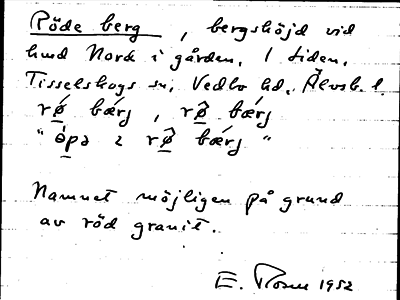 Röde berg, bergshöjd vid
hmd Nord i gården, 1 tiden,
Tisselskogs sn, Vedbo hd, Älvsb. l.
rǿ bærj, rø̂ bærj
"ǫ́pə 2 rø̂ bærj"
Namnet möjligen på grund
av röd granit.
E. Rosén 1952